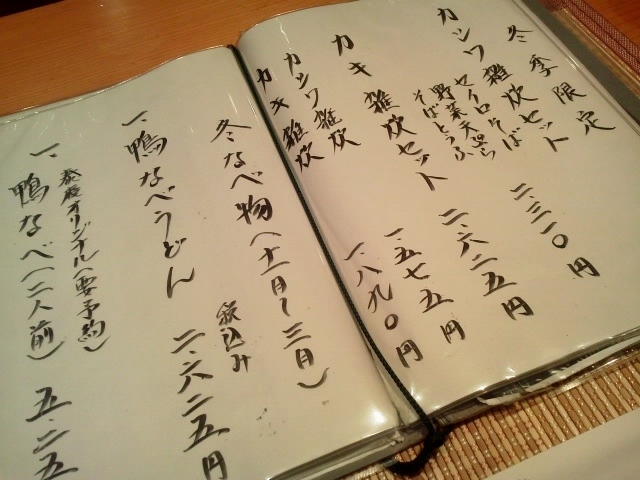 冬季限定
カシワ雑炊セット 二、三一〇円
セイロそば
野菜天ぷら
そばとうふ
カキ 雑炊セット 二、六二五円
カシワ雑炊 一、五七五円
カキ雑炊 一、八九〇円
冬なべ物(十一月〜三月)
税込み
一、鴨なべうどん 二、六二五円
オリジナル(要予約)
一、鴨なべ(二人前) 五、二五